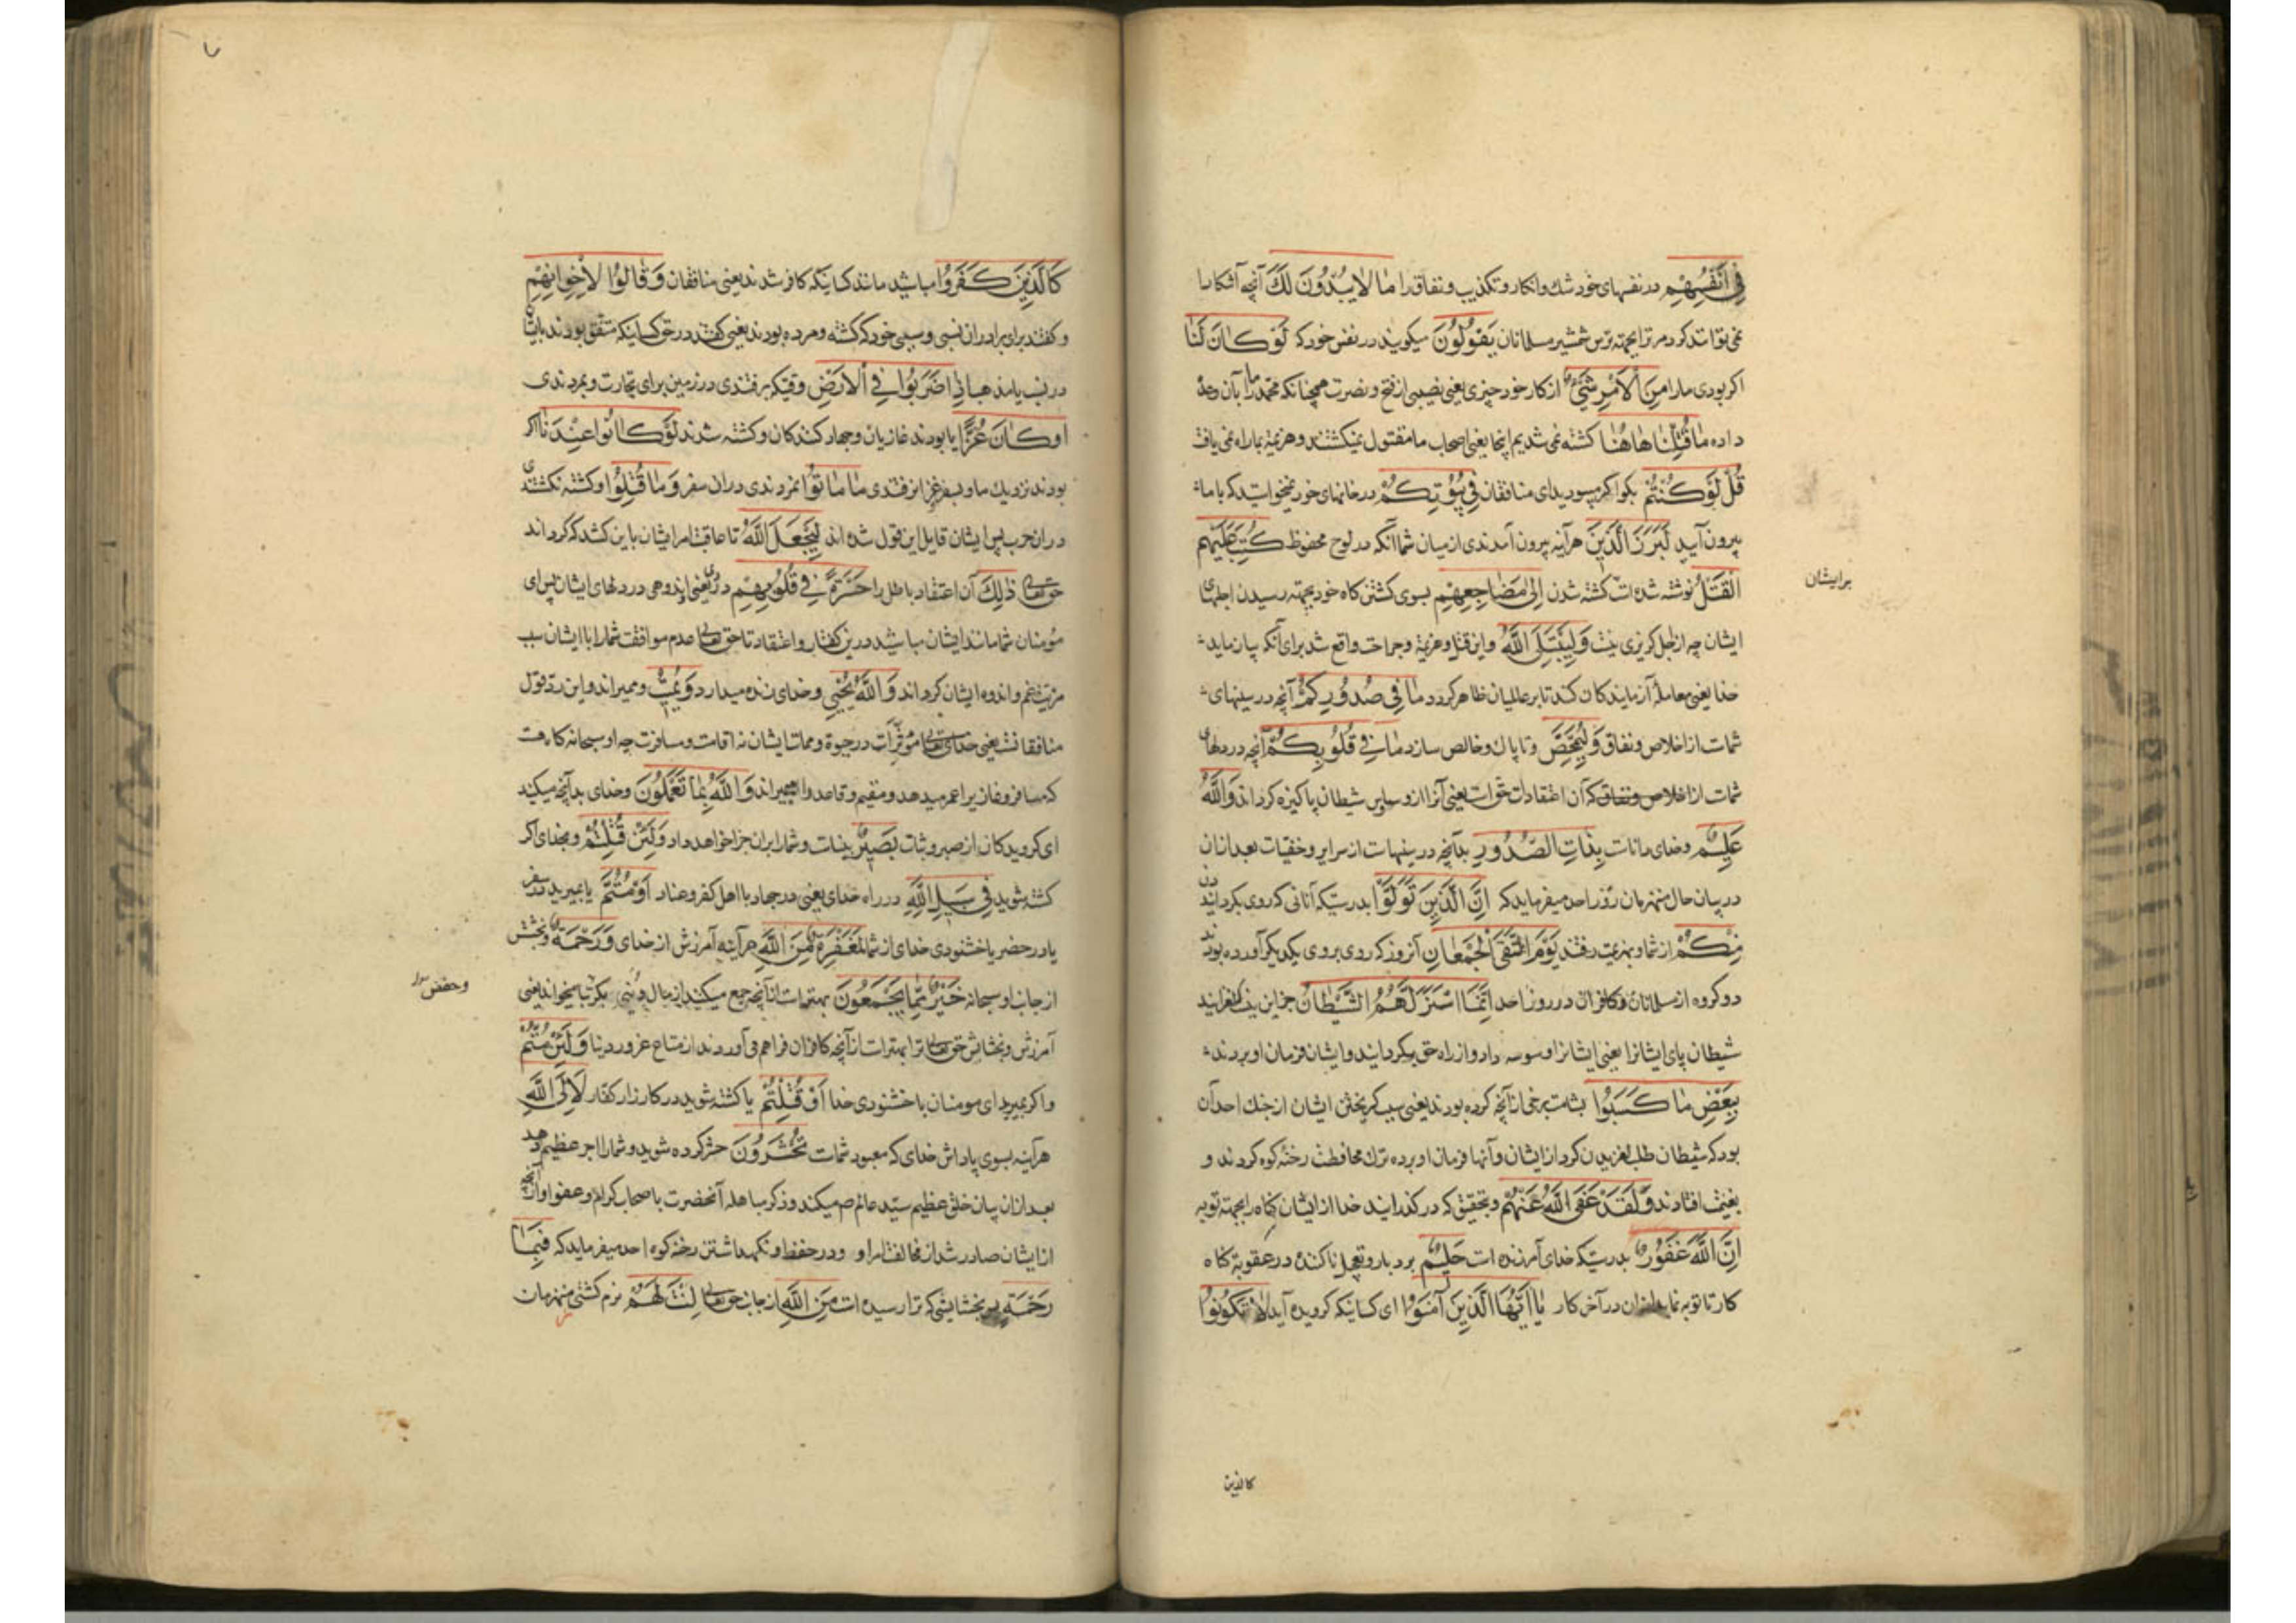 فِي أَنْفُسِهِمْ در نفسهای خود شك وانكار وتكذيب ونفاق را مَا لَا يُبْدُونَ لَكَ آنچه آشكارا
نمی توانند كرد مر ترا بجهته ترس شمشير مسلمانان يَقُولُونَ ميكويند در نفس خود كه لَوْ كَانَ لَنَا
اكر بودی مارا مِنَ الْأَمْرِ شَيْءٌ از كار خود چيزی يعنی نصيبی از فتح ونصرت همچنانكه محمد ما را بآن وعده
داده مَا قُتِلْنَا هَاهُنَا كشته نمی شديم اينجا يعنی اصحاب ما مقتول نميكشتند وهزيمة بما راه نمی يافت
قُلْ لَوْ كُنْتُمْ بكو اكر ميبوديد ای منافقان فِي بُيُوتِكُمْ در خانهای خود كه با ما
بيرون آييد لَبَرَزَ الَّذِينَ هر آينه بيرون آمدندی از ميان شما آنكه در لوح محفوظ كُتِبَ عَلَيْهِمُ
الْقَتْلُ نوشته شده است كشته شدن إِلَى مَضَاجِعِهِمْ بسوی كشتن كاه خود بجهته رسيدن اجلهای
برايشان
ايشان چه از اجل كريزی نيست وَلِيَبْتَلِيَ اللَّهُ واين قتل وهزيمة وجراحت واقع شد برای آنكه بيازمايد
خدا يعنی معاملهٔ آزمايندكان كند تا بر عالميان ظاهر كردد مَا فِي صُدُورِكُمْ آنچه در سينهای
شماست از اخلاص ونفاق وَلِيُمَحِّصَ وتا پاك وخالص سازد مَا فِي قُلُوبِكُمْ آنچه در دلهای
شماست از اخلاص ونفاق كه آن اعتقادات حق است يعنی آنرا از وساوس شيطان پاكيزه كرداند وَاللَّهُ
عَلِيمٌ وخدای داناست بِذَاتِ الصُّدُورِ بدآنچه در سينهاست از سراير وخفيات بعد ازان
در بيان حال منهزمان روز احد ميفرمايد كه إِنَّ الَّذِينَ تَوَلَّوْا بدرستيكه آنانی كه روی بكردانيدند
مِنْكُمْ از شما وبهزيمت رفتند يَوْمَ الْتَقَى الْجَمْعَانِ آنروز كه روی بروی يكديكر آورده بودند
دو كروه از مسلمانان وكافران در روز احد إِنَّمَا اسْتَزَلَّهُمُ الشَّيْطَانُ جز اين نيست كه لغزانيد
شيطان پای ايشانرا يعنی ايشانرا وسوسه داد واز راه حق بكردانيد وايشان فرمان او بردند
بِبَعْضِ مَا كَسَبُوا بشامت برخی از آنچه كرده بودند يعنی سبب كريختن ايشان از جنك احد آن
بود كه شيطان طلب لغزيدن كرد از ايشان وآنها فرمان او برده ترك محافظت رخنه كوه كردند و
بغنيمت افتادند وَلَقَدْ عَفَى اللَّهُ عَنْهُمْ وبتحقيق كه در كذرانيد خدا از ايشان كناه را بجهته توبه
إِنَّ اللَّهَ غَفُورٌ بدرستيكه خدای آمرزنده است حَلِيمٌ بردبار وتعجيل ناكننده در عقوبة كناه
كار تا توبه نمايد در آخر كار يَا أَيُّهَا الَّذِينَ آمَنُوا ای كسانيكه كرويده آيد لَا تَكُونُوا
كالذين
كَالَّذِينَ كَفَرُوا مباشيد مانند كسانيكه كافر شدند يعنی منافقان وَقَالُوا لِإِخْوَانِهِمْ
وكفتند برای برادران نسبی وسببی خود كه كشته ومرده بودند يعنی كفتند در حق كسانيكه متفق بودند بايشان
در نسب يا مذهب إِذَا ضَرَبُوا فِي الْأَرْضِ وقتيكه برفتندی در زمين برای تجارت وبمردندی
أَوْ كَانُوا غُزًّى يا بودند غازيان وجهاد كنندكان وكشته شدند لَوْ كَانُوا عِنْدَنَا اكر
بودند نزديك ما وبسفر وغزا نرفتندی مَا مَاتُوا نمردندی دران سفر وَمَا قُتِلُوا وكشته نكشتندی
دران حرب پس ايشان قايل اين قول شده اند لِيَجْعَلَ اللَّهُ تا عاقبت امر ايشان باين كشد كه كرداند
حق تعالی ذَلِكَ آن اعتقاد باطل را حَسْرَةً فِي قُلُوبِهِمْ يعنی اندوهی در دلهای ايشان پس ای
مؤمنان شما مانند ايشان مباشيد درين كفتار واعتقاد تا حق تعالی عدم موافقت شما را با ايشان سبب
مزيت غم واندوه ايشان كرداند وَاللَّهُ يُحْيِي وخدای زنده ميدارد وَيُمِيتُ وميميراند واين رد قول
منافقانست يعنی خدای تعالی مؤثر است در حيوة وممات ايشان نه اقامت ومسافرت چه او سبحانه كاه هست
كه مسافر وغازيرا عمر ميدهد ومقيم وقاعد را ميميراند وَاللَّهُ بِمَا تَعْمَلُونَ وخدای بدآنچه ميكنيد
ای كرويدكان از صبر وثبات بَصِيرٌ بيناست وشما را بران جزا خواهد داد وَلَئِنْ قُتِلْتُمْ وبخدای اكر
كشته شويد فِي سَبِيلِ اللَّهِ در راه خدای يعنی در جهاد با اهل كفر وعناد أَوْ مُتُّمْ يا بميريد در سفر
يا در حضر با خشنودی خدای از شما لَمَغْفِرَةٌ مِنَ اللَّهِ هر آينه آمرزش از خدای وَرَحْمَةٌ وبخشش
از جانب او سبحانه خَيْرٌ مِمَّا يَجْمَعُونَ بهتر است از آنچه جمع ميكنند از مال دنيی بكر بتا ميخواند يعنی
وحفص
آمرزش وبخشايش حق تعالی ترا بهتر است از آنچه كافران فراهم می آوردند از متاع غرور دنيا وَلَئِنْ مُتُّمْ
واكر بميريد ای مومنان با خشنودی خدا أَوْ قُتِلْتُمْ يا كشته شويد در كارزار كفار لَإِلَى اللَّهِ
هر آينه بسوی پاداش خدای كه معبود شماست تُحْشَرُونَ حشر كرده شويد وشما را اجر عظيم دهد
بعد ازان بيان خلق عظيم سيد عالم ص ميكند وذكر مساهله آنحضرت با صحاب كرام وعفو او از آنچه
از ايشان صادر شد از مخالفت امر او ودر حفظ ونكهداشتن رخنه كوه احد ميفرمايد كه فَبِمَا
رَحْمَةٍ پس بخشايشی كه ترا رسيده است مِنَ اللَّهِ از جانب حق تعالی لِنْتَ لَهُمْ نرم كشتی منهزمان